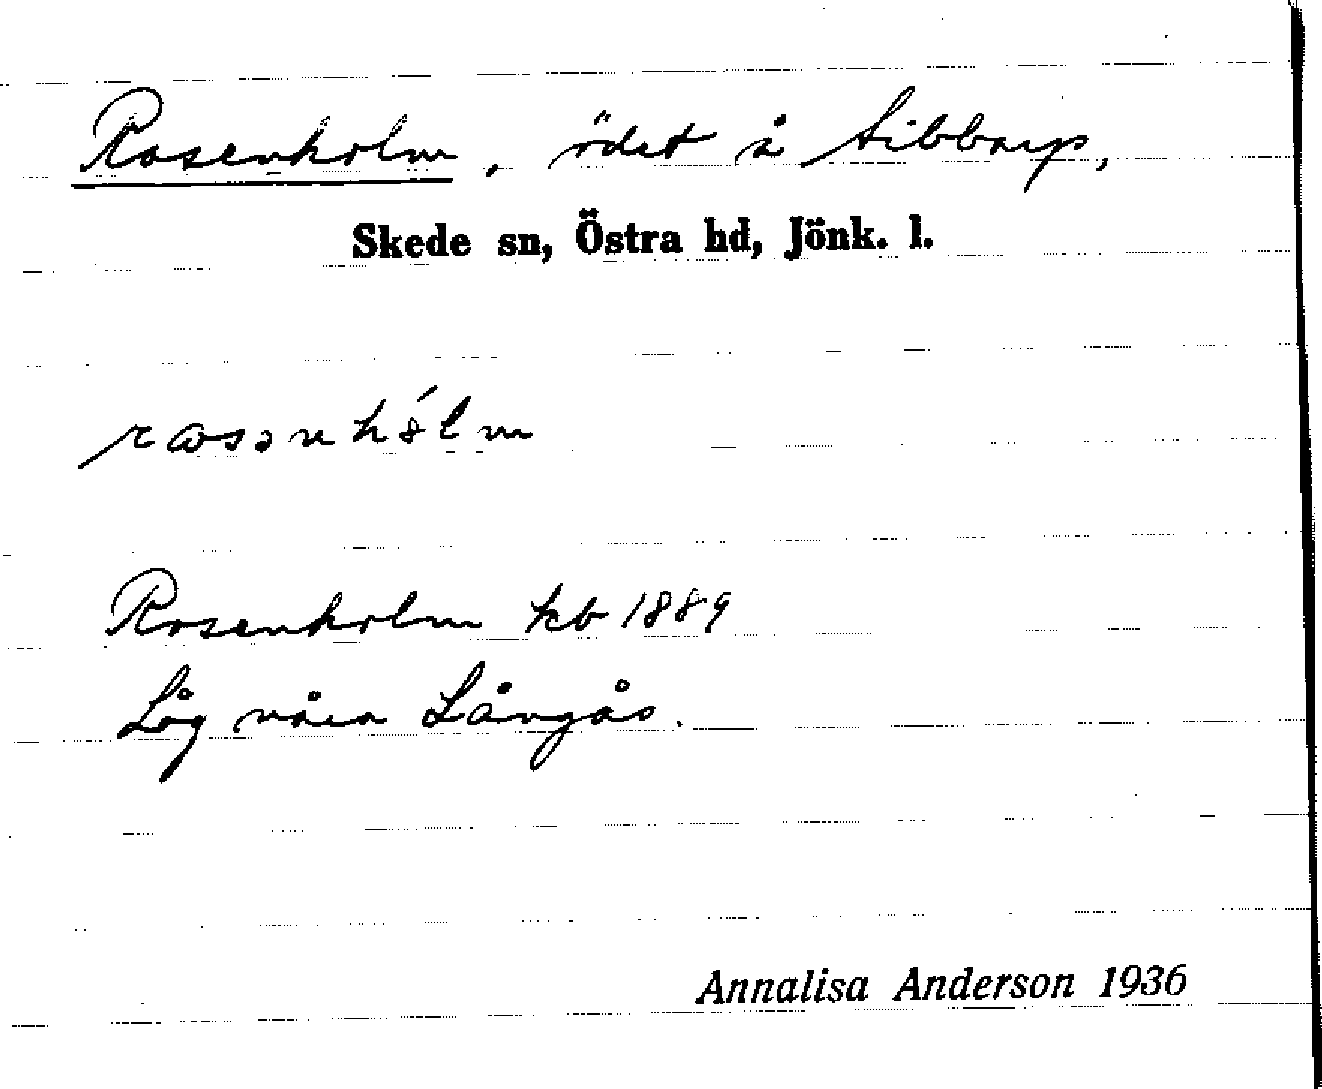 Rosenholm, ödet å Sibbarp,
Skede sn, Östra hd, Jönk. l.
rɷsənhólm
Rosenholm kb 1889
Låg nära Långås.
Annalisa Anderson 1936